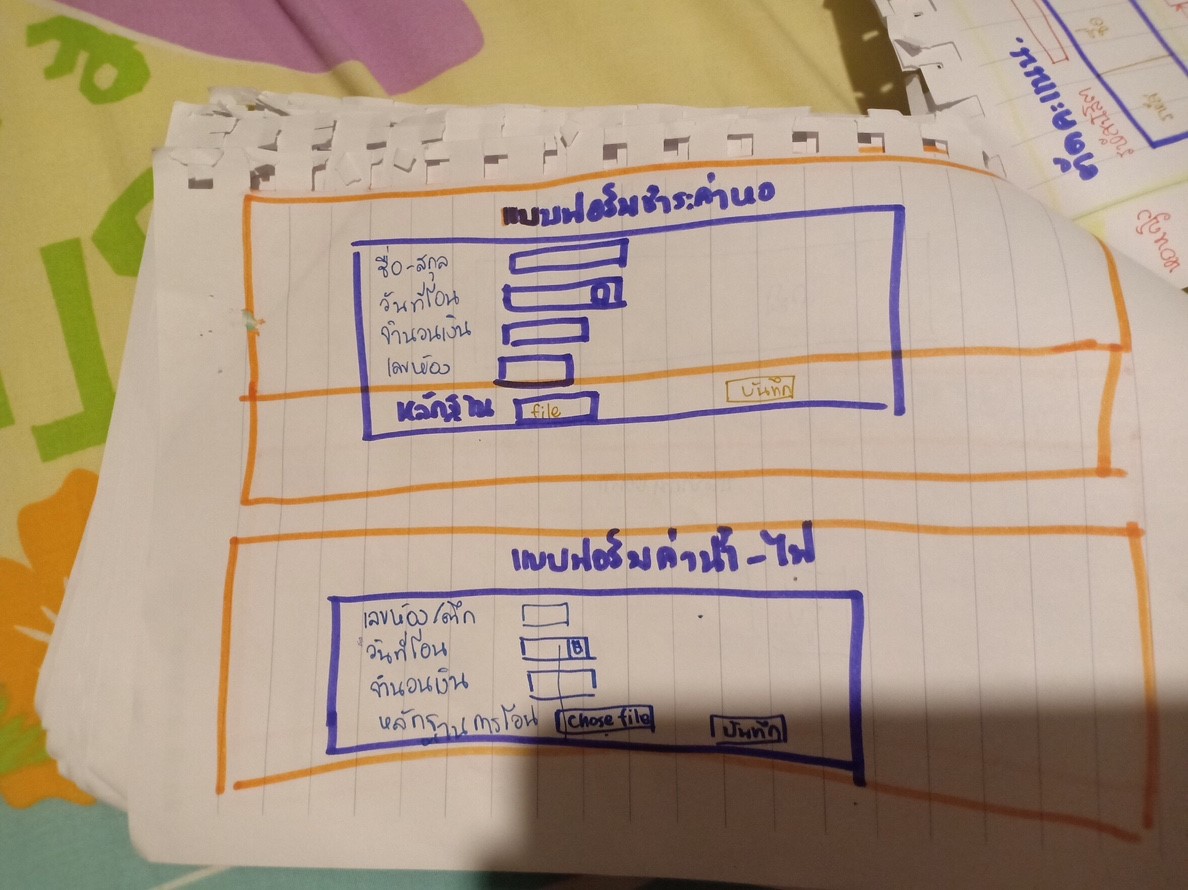 แบบฟอร์มชำระค่าหอ
ชื่อ-สกุล
วันที่โอน
จำนวนเงิน
เลขห้อง
หลักฐาน file
บันทึก
แบบฟอร์มค่าน้ำ-ไฟ
เลขห้อง/ตึก
วันที่โอน
จำนวนเงิน
หลักฐานการโอน Chose file บันทึก